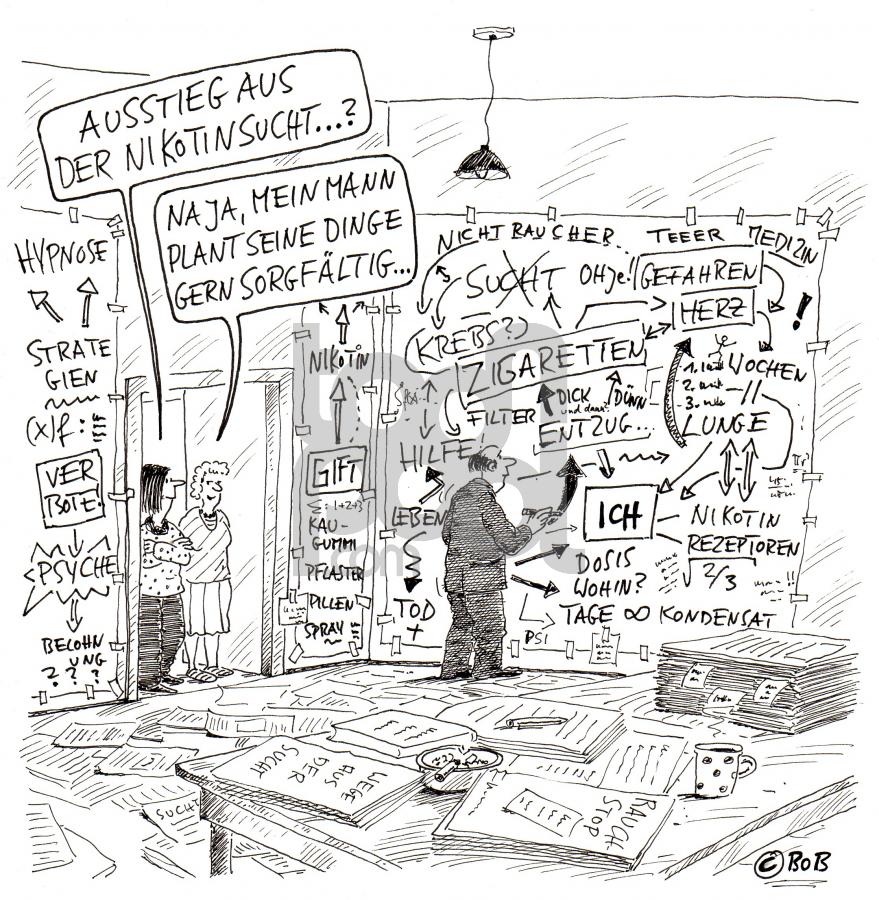 AUSSTIEG AUS
DER NIKOTINSUCHT...?
NA JA, MEIN MANN
PLANT SEINE DINGE
GERN SORGFÄLTIG...
HYPNOSE
STRATE
GIEN
(X)f :
VER
BOTE!
PSYCHE
BELOHN
UNG
? ? ?
NIKOTIN
GIFT
Σ: 1+2+3
KAU-
GUMMI
PFLASTER
PILLEN
SPRAY
NICHTRAUCHER
TEEER
MEDIZIN
SUCHT
OHje!!
GEFAHREN
HERZ
!
KREBS??
ZIGARETTEN
WOCHEN
1.
2.
3.
DICK
und dann?
DÜNN
FILTER
ENTZUG...
LUNGE
HILFE
LEBEN
ICH
NIKOTIN
REZEPTOREN
DOSIS
WOHIN?
2/3
TOD
+
TAGE ∞ KONDENSAT
PSI
WEGE
AUS DER
SUCHT
RAUCH
STOP
SUCHT
© BOB